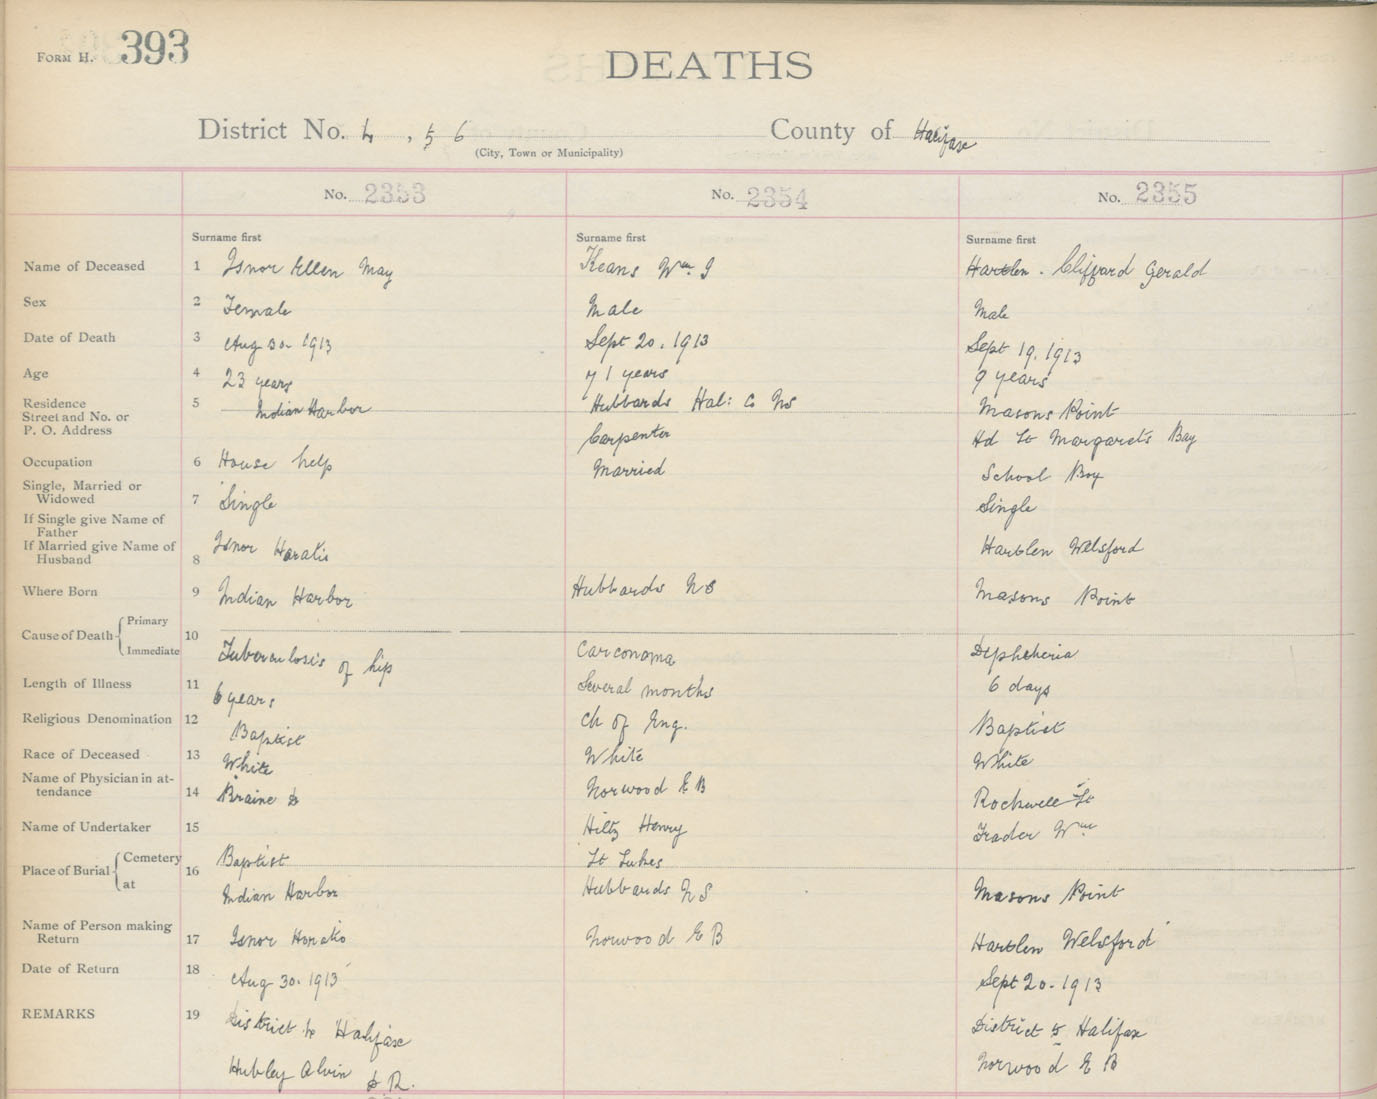 FORM H. 393
DEATHS
District No. 4, 5 6 County of Halifax
(City, Town or Municipality)
No. 2353 No. 2354 No. 2355
Surname first Surname first Surname first
Name of Deceased 1 Isnor Ellen May Keans Wm. J Hartlen. Cliffard Gerald
Sex 2 Female Male Male
Date of Death 3 Aug 30. 1913 Sept 20. 1913 Sept 19. 1913
Age 4 23 years 71 years 9 years
Residence 5 Indian Harbor Hubbards Hal: Co NS Masons Point
Street and No. or
P. O. Address Carpenter Hd St Margarets Bay
Occupation 6 House help Married School Boy
Single, Married or
Widowed 7 Single Single
If Single give Name of
Father
If Married give Name of
Husband 8 Isnor Horatio Hartlen Welsford
Where Born 9 Indian Harbor Hubbards NS Masons Point
Cause of Death Primary
10
Immediate Tuberculosis of hip Carconoma Diphtheria
Length of Illness 11 6 years Several months 6 days
Religious Denomination 12 Baptist Ch of Eng. Baptist
Race of Deceased 13 White White White
Name of Physician in at-
tendance 14 Braine Norwood E B Rockwell
Name of Undertaker 15 Hiltz Henry Frader Wm
Place of Burial Cemetery 16 Baptist St Lukes
at Indian Harbor Hubbards NS Masons Point
Name of Person making
Return 17 Isnor Horatio Norwood E B Hartlen Welsford
Date of Return 18 Aug 30. 1913 Sept 20. 1913
REMARKS 19 District 4 Halifax District 5 Halifax
Hubley Alvin D R. Norwood E B